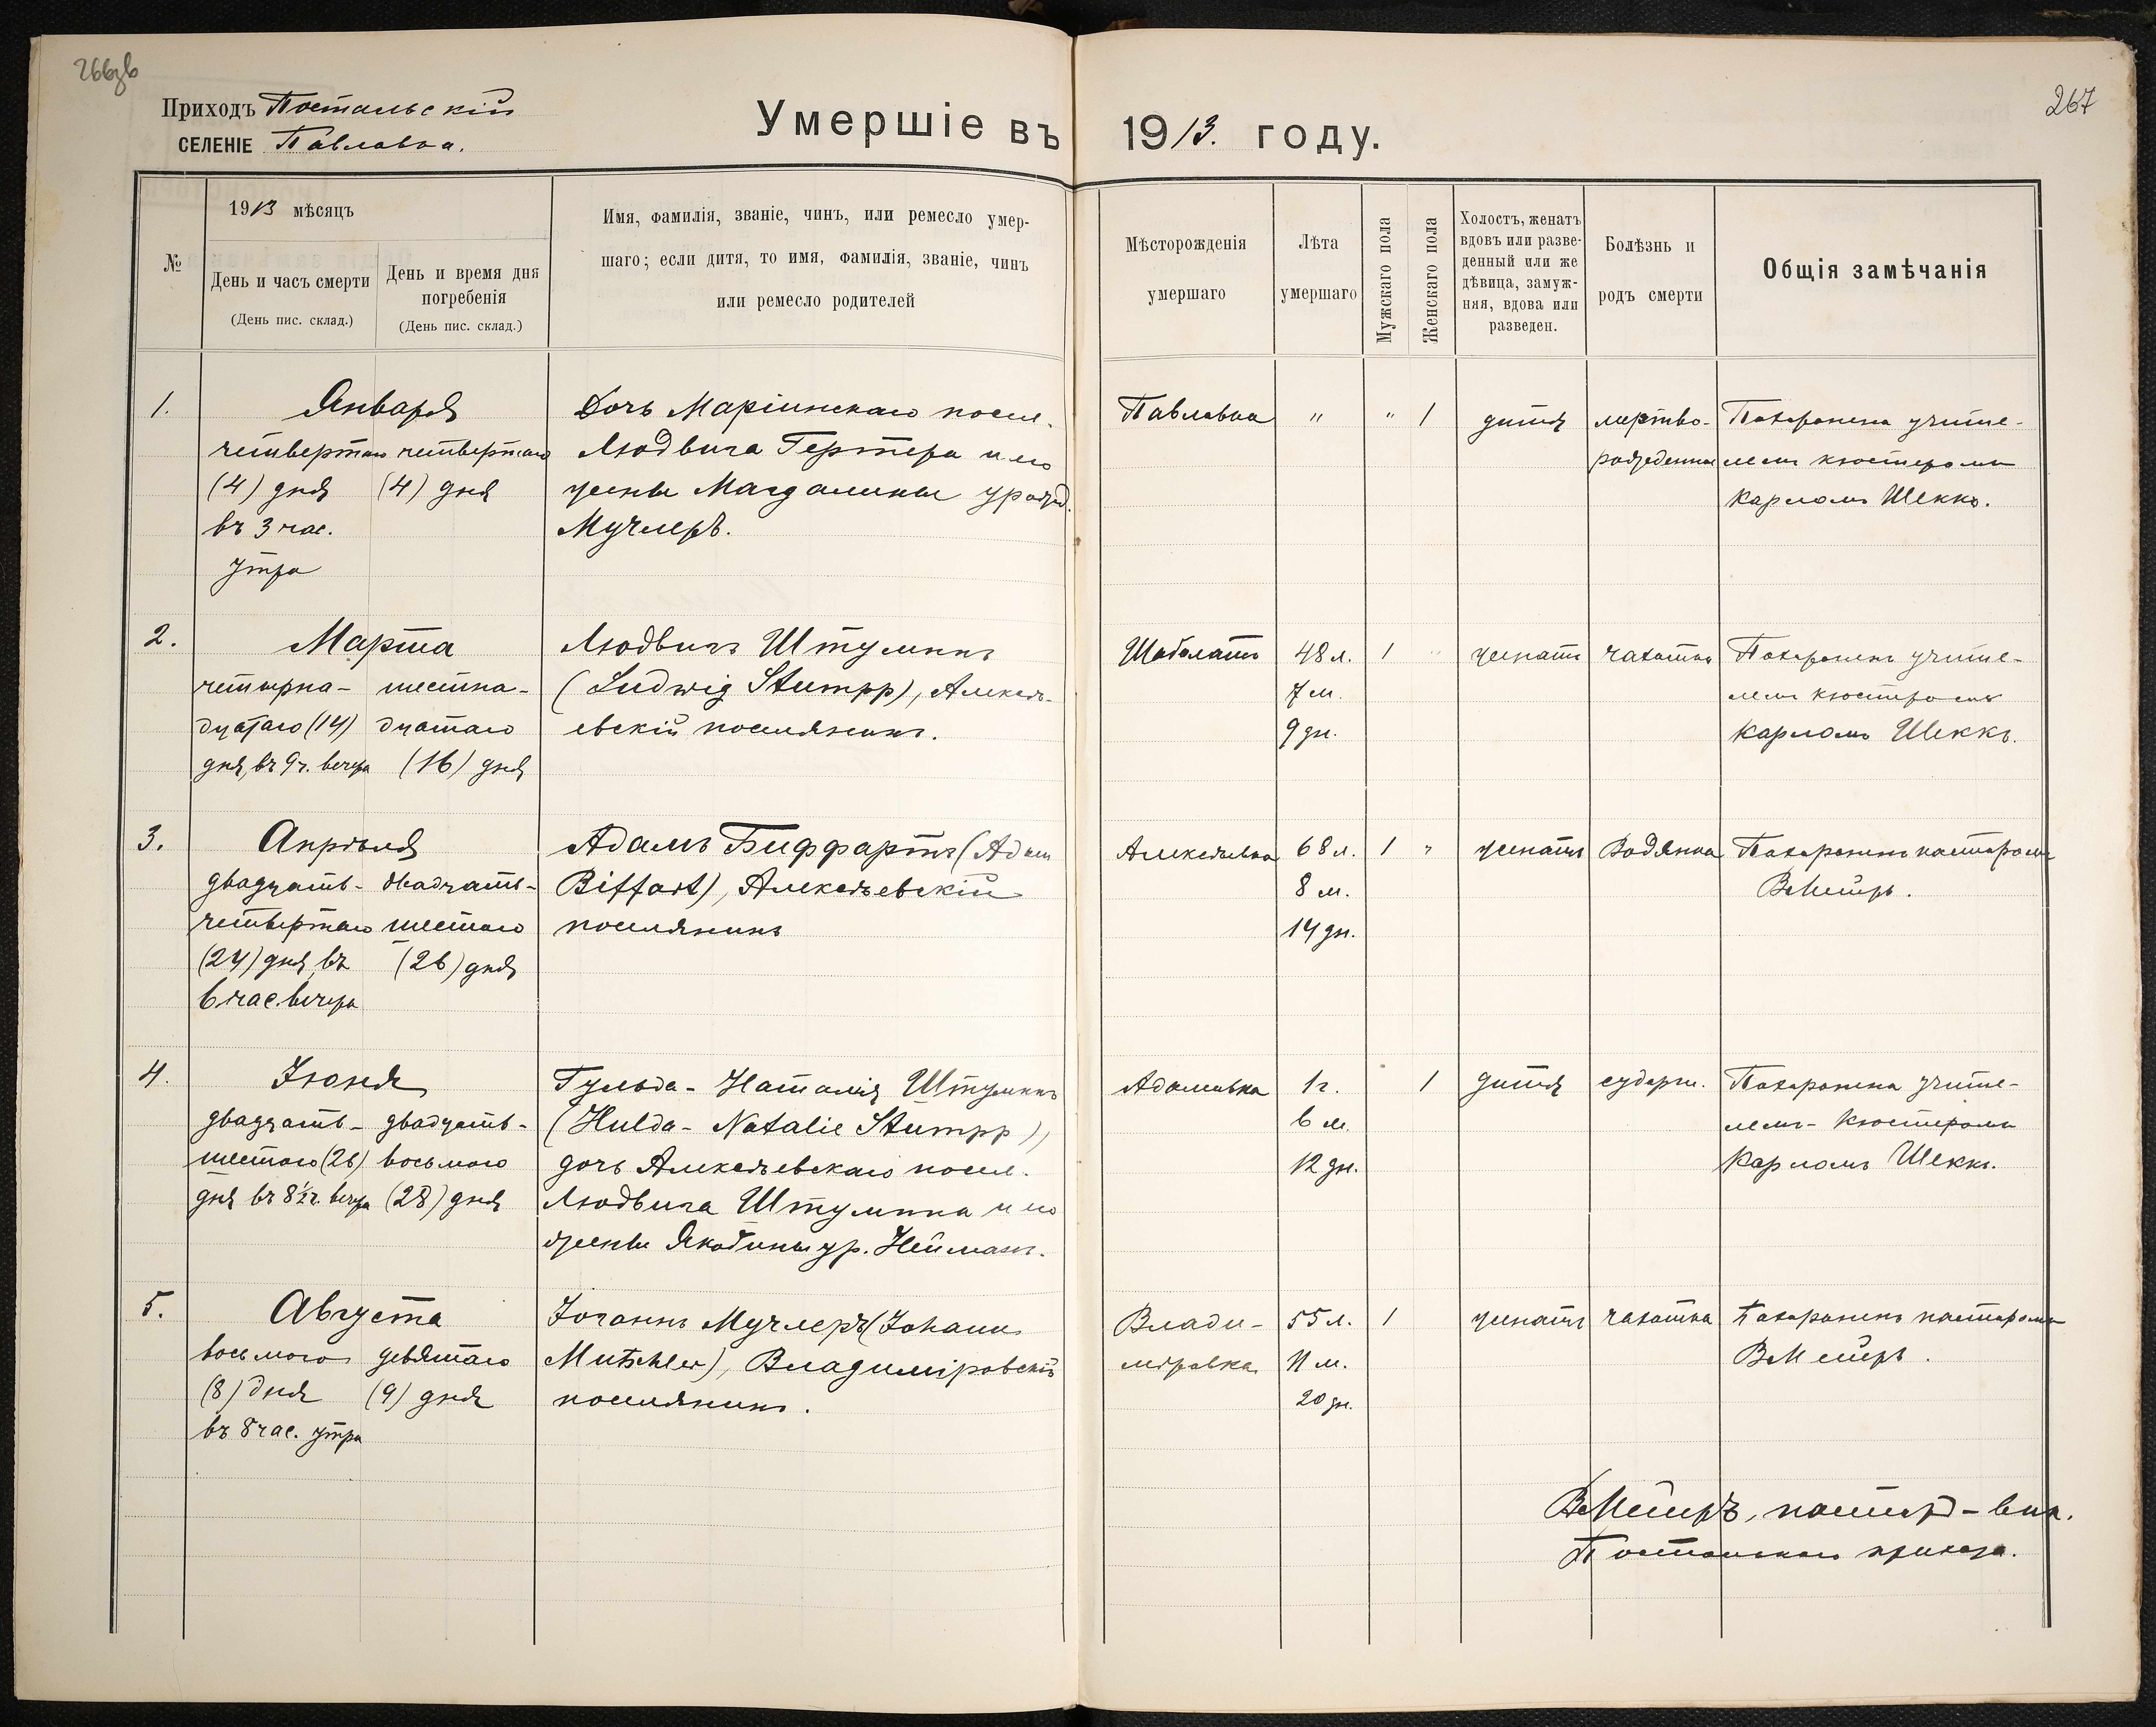 267
Приходъ Постальскій
СЕЛЕНІЕ Павловка.
Умершіе въ 1913. году.
№
1913 мѣсяцъ
День и часъ смерти
(День пис. склад.)
День и время дня
погребенія
(День пис. склад.)
Имя, фамилія, званіе, чинъ, или ремесло умер-
шаго; если дитя, то имя, фамилія, званіе, чинъ
или ремесло родителей
Мѣсторожденія
умершаго
Лѣта
умершаго
Мужскаго пола
Женскаго пола
Холостъ, женатъ
вдовъ или разве-
денный или же
дѣвица, замуж-
няя, вдова или
разведен.
Болѣзнь и
родъ смерти
Общія замѣчанія
1.
Января
четвертаго
(4) дня
въ 3 час.
утра
четвертаго
(4) дня
Дочь Маріинскаго посел.
Людвига Гертера и его
жены Магдалины урожд.
Мучлеръ.
Павловка
"
"
1
дитя
мертво-
рожденная
Похоронена учите-
лемъ кюстеромъ
Карломъ Шеккъ.
2.
Марта
четырна-
дцатаго (14)
дня, въ 9 ч. вечера
шестна-
дцатаго
(16) дня
Людвигъ Штумппъ
(Ludwig Stumpp), Алексѣ-
евскій поселянинъ.
Шаболатъ
48 л.
7 м.
9 дн.
1
"
женатъ
чахотка
Похороненъ учите-
лемъ кюстеромъ
Карломъ Шеккъ.
3.
Апрѣля
двадцать-
четвертаго
(24) дня, въ
6 час. вечера
двадцать-
шестаго
(26) дня
Адамъ Биффартъ (Adam
Biffart), Алексѣевскій
поселянинъ
Алексѣевка
68 л.
8 м.
14 дн.
1
"
женатъ
Водянка
Похороненъ пасторомъ
В Мейеръ.
4.
Іюня
двадцать-
шестого (26)
дня въ 8 1/2 ч. вечера
двадцать-
восьмого
(28) дня
Гульда-Наталія Штумппъ
(Hulda-Natalie Stumpp),
дочь Алексѣевскаго посел.
Людвига Штумппа и его
жены Якобины ур. Нейманъ.
Адамовка
1 г.
6 м.
12 дн.
1
дитя
судорги.
Похоронена учите-
лемъ-кюстеромъ
Карломъ Шеккъ.
5.
Августа
восьмого
(8) дня
въ 8 час. утра
девятаго
(9) дня
Іоганнъ Мучлеръ (Johann
Mutschler), Владиміровскій
поселянинъ.
Влади-
міровка
55 л.
11 м.
20 дн.
1
женатъ
чахотка
Похороненъ пасторомъ
В Мейеръ.
В Мейеръ, пасторъ-вик.
Постальскаго прихода.